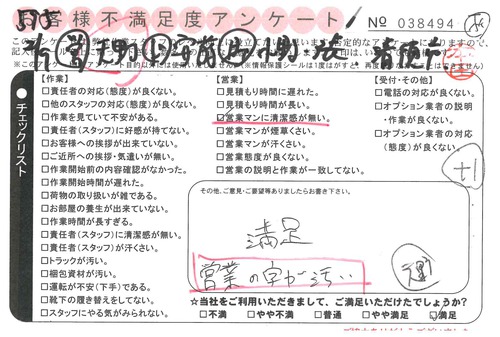 お客様不満足度アンケート
No 038494
チェックリスト
【作業】
□責任者の対応(態度)が良くない。
□他のスタッフの対応(態度)が良くない。
□作業を見ていて不安がある。
□責任者(スタッフ)に好感が持てない。
□お客様への挨拶が出来ていない。
□ご近所への挨拶・気遣いが無い。
□作業開始前の内容確認がなかった。
□作業開始時間が遅れた。
□荷物の取り扱いが雑である。
□お部屋の養生が出来ていない。
□作業時間が長すぎる。
□責任者(スタッフ)に清潔感が無い。
□責任者(スタッフ)が汗くさい。
□トラックが汚い。
□梱包資材が汚い。
□運転が不安(下手)である。
□靴下の履き替えをしてない。
□スタッフにやる気がみられない。
【営業】
□見積もり時間に遅れた。
□見積もり時間が長い。
☑営業マンに清潔感が無い。
□営業マンが煙草くさい。
□営業マンが汗くさい。
□営業態度が良くない。
□営業の説明と作業が一致してない。
【受付・その他】
□電話の対応が良くない。
□オプション業者の説明
・作業が良くない。
□オプション業者の対応
(態度)が良くない。
+1
その他、ご意見・ご要望等ありましたらお書き下さい。
満足
営業の字が汚い
☆当社をご利用いただきまして、ご満足いただけたでしょうか?
□不満 □やや不満 □普通 □やや満足 ☑満足